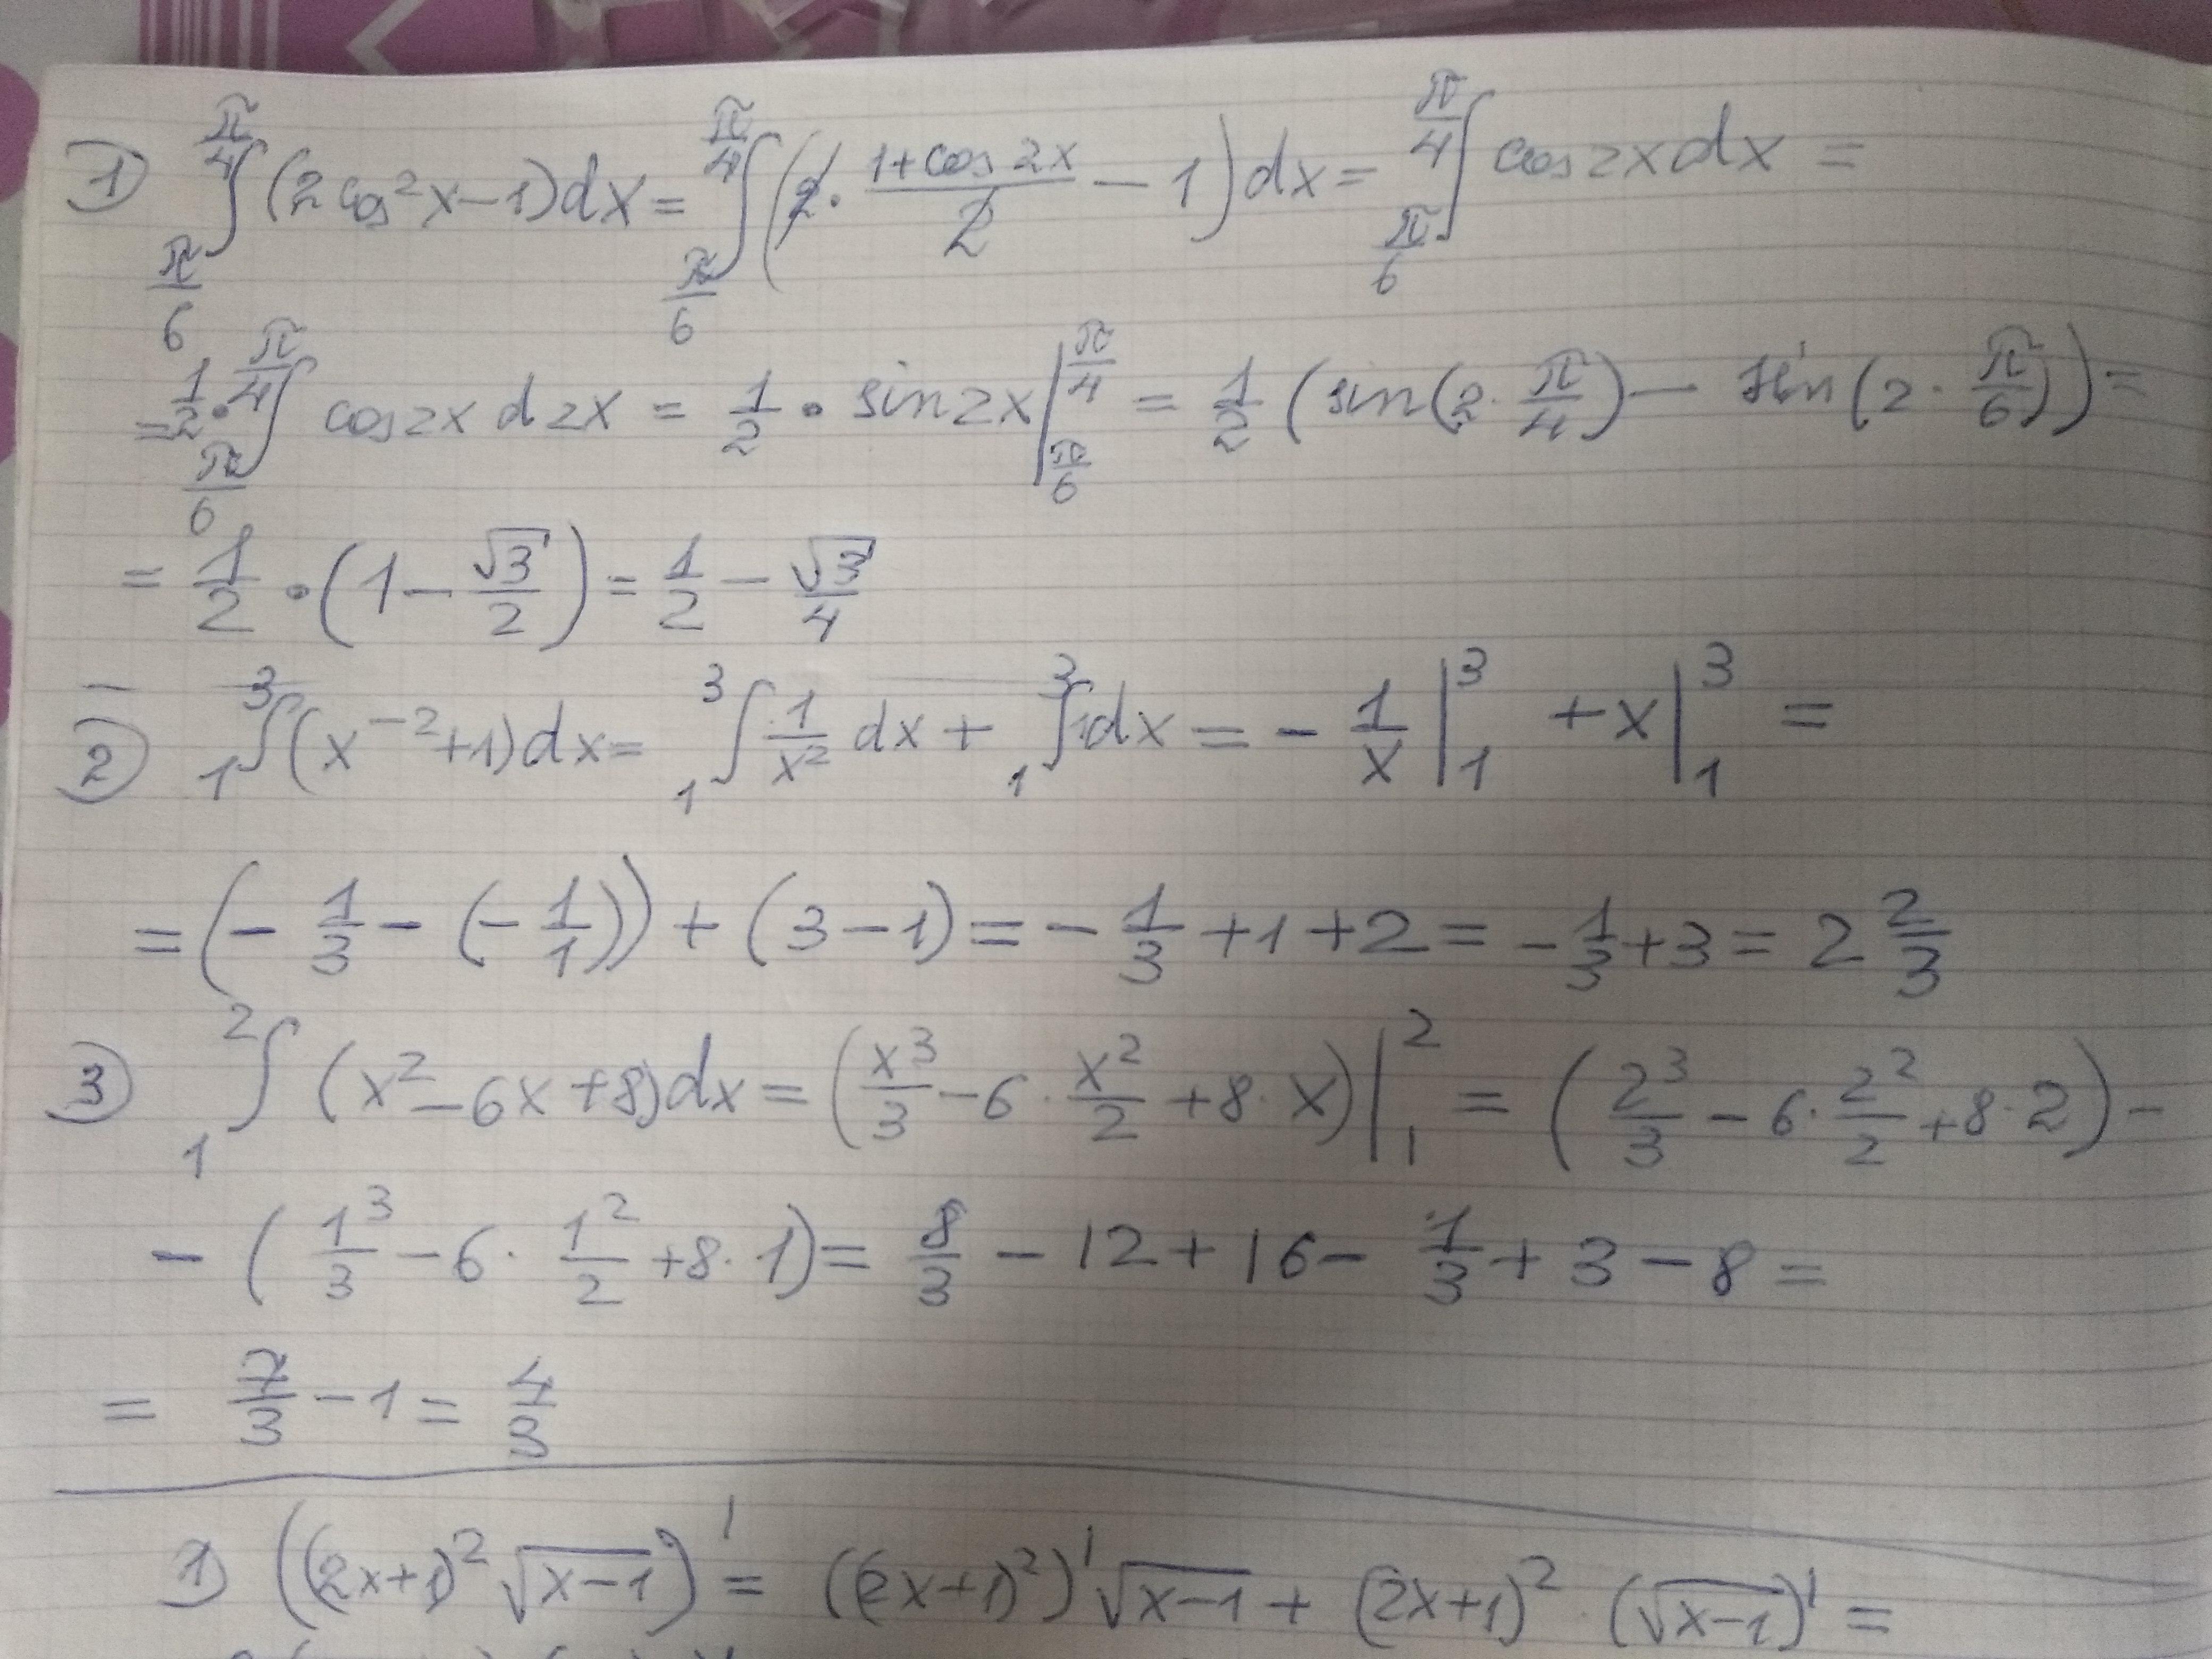 1) π/4 ∫ π/6 (2cos²x−1)dx = π/4 ∫ π/6 (2·(1+cos2x)/2 − 1)dx = π/4 ∫ π/6 cos2xdx =
= 1/2 · π/4 ∫ π/6 cos2x d2x = 1/2 · sin2x |π/4 π/6 = 1/2 (sin(2·π/4) − sin(2·π/6)) =
= 1/2 · (1 − √3/2) = 1/2 − √3/4
2) 3 ∫ 1 (x⁻²+1)dx = 3 ∫ 1 1/x² dx + 3 ∫ 1 1dx = − 1/x |3 1 + x |3 1 =
= (− 1/3 − (− 1/1)) + (3−1) = − 1/3 + 1 + 2 = − 1/3 + 3 = 2 2/3
3) 2 ∫ 1 (x²−6x+8)dx = (x³/3 − 6·x²/2 + 8·x) |2 1 = (2³/3 − 6·2²/2 + 8·2) −
− (1³/3 − 6·1²/2 + 8·1) = 8/3 − 12 + 16 − 1/3 + 3 − 8 =
= 7/3 − 1 = 4/3
1) ((2x+1)²√(x−1))' = ((2x+1)²)'√(x−1) + (2x+1)²·(√(x−1))' =